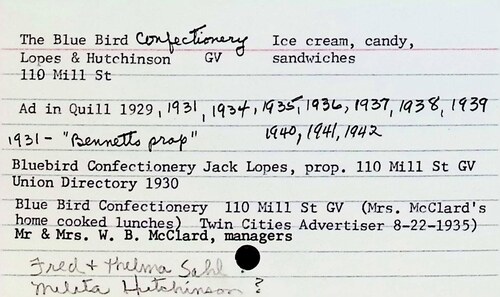 The Blue Bird Confectionery Ice cream, candy,
Lopes & Hutchinson GV sandwiches
110 Mill St
Ad in Quill 1929, 1931, 1934, 1935, 1936, 1937, 1938, 1939
1931 - "Bennetts prop" 1940, 1941, 1942
Bluebird Confectionery Jack Lopes, prop. 110 Mill St GV
Union Directory 1930
Blue Bird Confectionery 110 Mill St GV (Mrs. McClard's
home cooked lunches) Twin Cities Advertiser 8-22-1935)
Mr & Mrs. W. B. McClard, managers
Fred + Thelma Sahl ?
Meleta Hutchinson ?